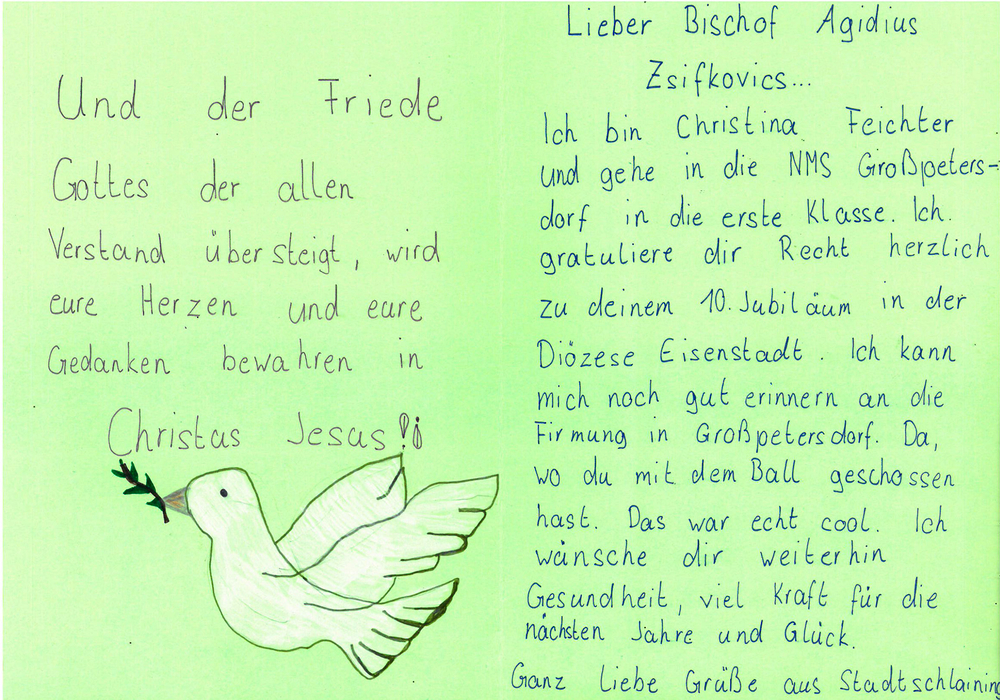 Und der Friede
Gottes der allen
Verstand übersteigt, wird
eure Herzen und eure
Gedanken bewahren in
Christus Jesus!!
Lieber Bischof Agidius
Zsifkovics...
Ich bin Christina Feichter
und gehe in die NMS Großpeters-
dorf in die erste Klasse. Ich
gratuliere dir Recht herzlich
zu deinem 10. Jubiläum in der
Diözese Eisenstadt. Ich kann
mich noch gut erinnern an die
Firmung in Großpetersdorf. Da,
wo du mit dem Ball geschossen
hast. Das war echt cool. Ich
wünsche dir weiterhin
Gesundheit, viel Kraft für die
nächsten Jahre und Glück.
Ganz Liebe Grüße aus Stadtschlaining